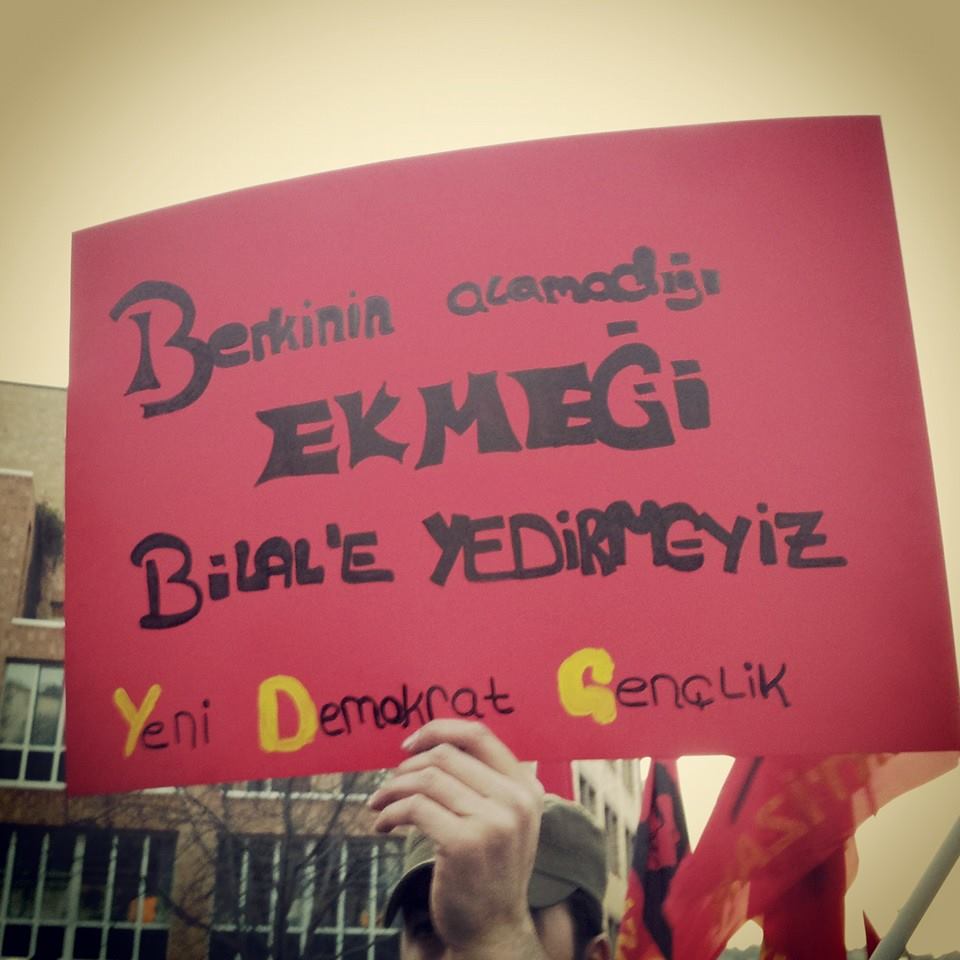 Berkinin alamadığı
EKMEĞİ
BİLAL'E YEDİRMEYİZ
Yeni Demokrat Gençlik